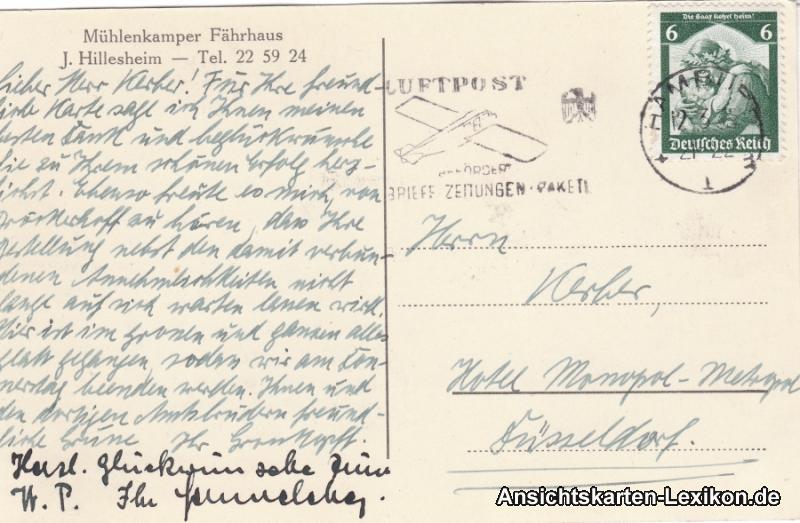 Mühlenkamper Fährhaus
J. Hillesheim — Tel. 22 59 24
Lieber Herr Kerber! Für Ihre freund-
liche Karte sage ich Ihnen meinen
besten Dank und beglückwünsche
Sie zu Ihrem schönen Erfolg herz-
lichst. Ebenso freute es mich, von
zu hören, dass Ihre
nebst den damit verbun-
denen Annehmlichkeiten nicht
lange auf sich warten lassen wird.
Hier ist im Grossen und ganzen alles
glatt gegangen, sodass wir am Don-
nerstag beenden werden. Ihnen und
den dortigen Amtsbrüdern freund-
liche Grüsse Ihr
Herzl. Glückwünsche zum
W. P. Ihr
LUFTPOST
BEFÖRDERT
BRIEFE ZEITUNGEN · PAKETE
Die Saar kehrt heim!
6 6
Deutsches Reich
HAMBURG
1
Herrn
Kerber,
Hotel Monopol-Metropol
Düsseldorf.
Ansichtskarten-Lexikon.de